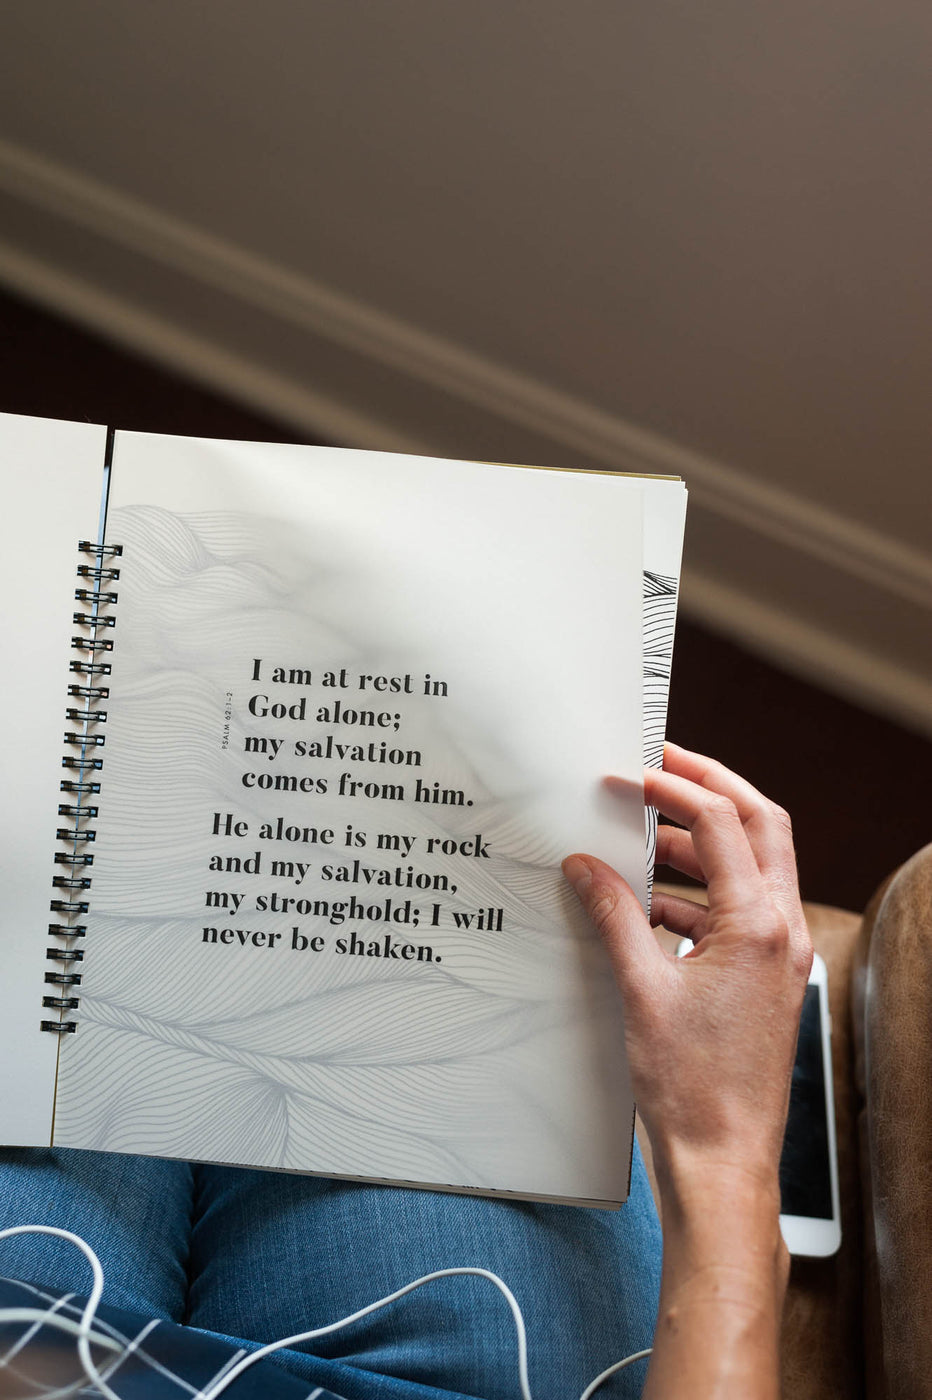 I am at rest in
God alone;
my salvation
comes from him.
PSALM 62:1–2
He alone is my rock
and my salvation,
my stronghold; I will
never be shaken.